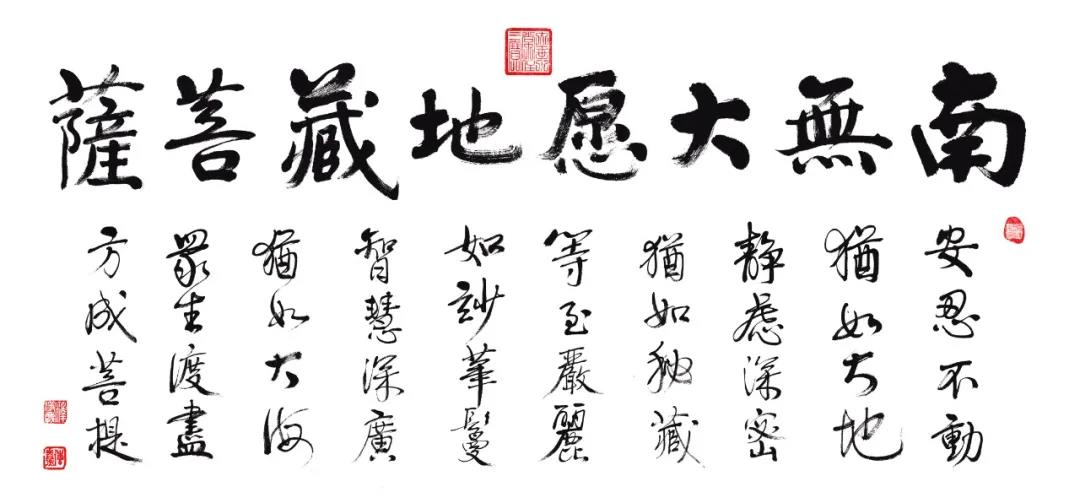 南無大愿地藏菩薩
安忍不動
猶如大地
靜慮深密
猶如秘藏
等至嚴麗
如妙華鬘
智慧深廣
猶如大海
眾生渡盡
方成菩提